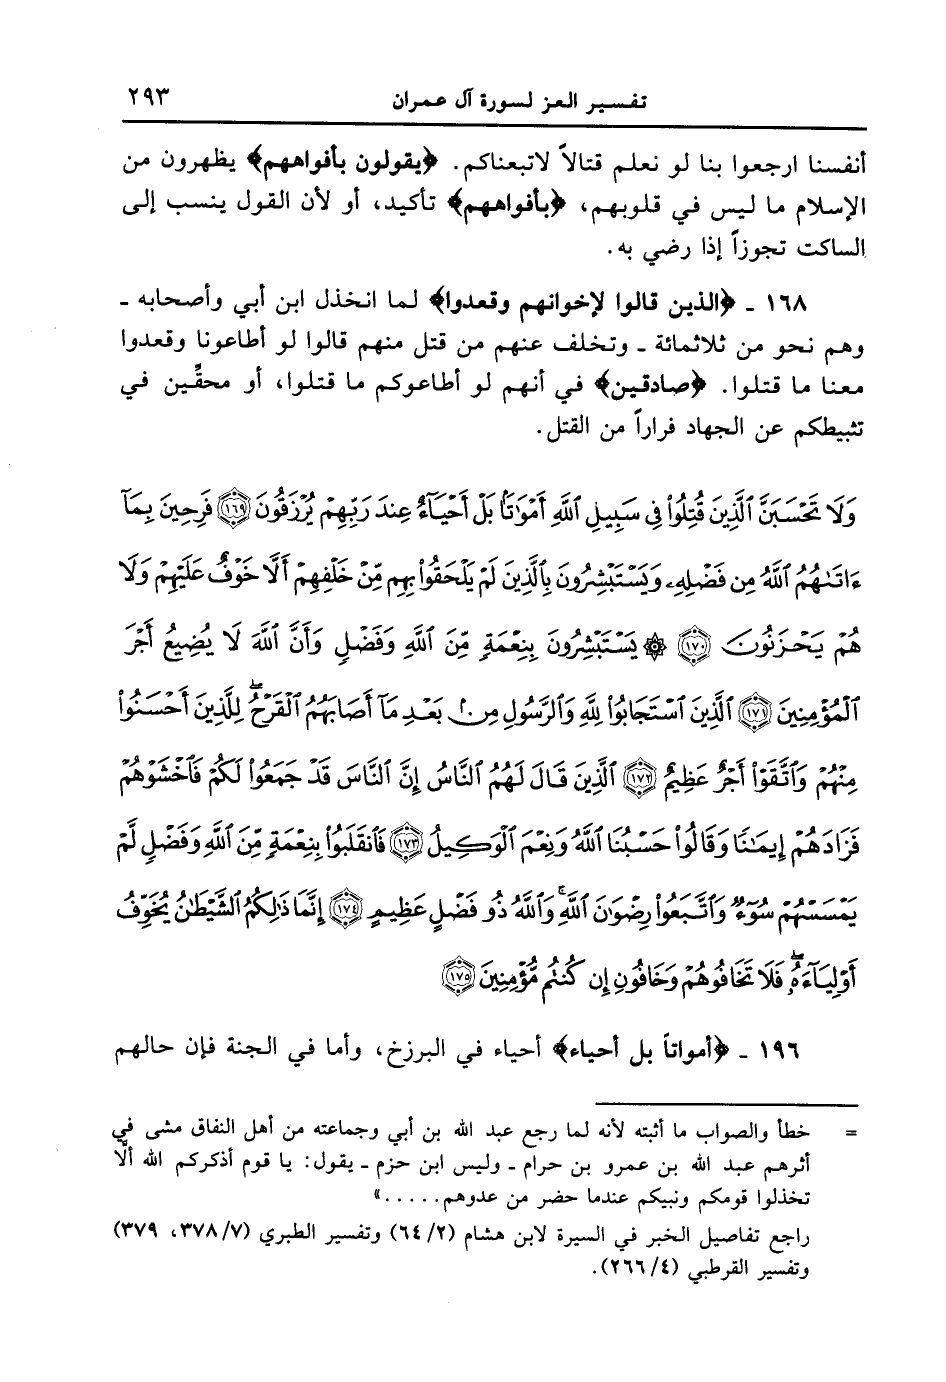 تفسير العز لسورة آل عمران ٢٩٣
أنفسنا ارجعوا بنا لو نعلم قتالاً لاتبعناكم. ﴿يقولون بأفواههم﴾ يظهرون من
الإسلام ما ليس في قلوبهم، ﴿بأفواههم﴾ تأكيد، أو لأن القول ينسب إلى
الساكت تجوزاً إذا رضي به.
١٦٨ ـ ﴿الذين قالوا لإخوانهم وقعدوا﴾ لما انخذل ابن أبي وأصحابه ـ
وهم نحو من ثلاثمائة ـ وتخلف عنهم من قتل منهم قالوا لو أطاعونا وقعدوا
معنا ما قتلوا. ﴿صادقين﴾ في أنهم لو أطاعوكم ما قتلوا، أو محقِّين في
تثبيطكم عن الجهاد فراراً من القتل.
وَلَا تَحْسَبَنَّ ٱلَّذِينَ قُتِلُوا۟ فِى سَبِيلِ ٱللَّهِ أَمْوَٰتًۢا بَلْ أَحْيَآءٌ عِندَ رَبِّهِمْ يُرْزَقُونَ ١٦٩ فَرِحِينَ بِمَآ
ءَاتَىٰهُمُ ٱللَّهُ مِن فَضْلِهِۦ وَيَسْتَبْشِرُونَ بِٱلَّذِينَ لَمْ يَلْحَقُوا۟ بِهِم مِّنْ خَلْفِهِمْ أَلَّا خَوْفٌ عَلَيْهِمْ وَلَا
هُمْ يَحْزَنُونَ ١٧٠ ۞ يَسْتَبْشِرُونَ بِنِعْمَةٍ مِّنَ ٱللَّهِ وَفَضْلٍ وَأَنَّ ٱللَّهَ لَا يُضِيعُ أَجْرَ
ٱلْمُؤْمِنِينَ ١٧١ ٱلَّذِينَ ٱسْتَجَابُوا۟ لِلَّهِ وَٱلرَّسُولِ مِنۢ بَعْدِ مَآ أَصَابَهُمُ ٱلْقَرْحُ ۚ لِلَّذِينَ أَحْسَنُوا۟
مِنْهُمْ وَٱتَّقَوْا۟ أَجْرٌ عَظِيمٌ ١٧٢ ٱلَّذِينَ قَالَ لَهُمُ ٱلنَّاسُ إِنَّ ٱلنَّاسَ قَدْ جَمَعُوا۟ لَكُمْ فَٱخْشَوْهُمْ
فَزَادَهُمْ إِيمَـٰنًا وَقَالُوا۟ حَسْبُنَا ٱللَّهُ وَنِعْمَ ٱلْوَكِيلُ ١٧٣ فَٱنقَلَبُوا۟ بِنِعْمَةٍ مِّنَ ٱللَّهِ وَفَضْلٍ لَّمْ
يَمْسَسْهُمْ سُوٓءٌ وَٱتَّبَعُوا۟ رِضْوَٰنَ ٱللَّهِ ۗ وَٱللَّهُ ذُو فَضْلٍ عَظِيمٍ ١٧٤ إِنَّمَا ذَٰلِكُمُ ٱلشَّيْطَـٰنُ يُخَوِّفُ
أَوْلِيَآءَهُۥ ۖ فَلَا تَخَافُوهُمْ وَخَافُونِ إِن كُنتُم مُّؤْمِنِينَ ١٧٥
١٩٦ ـ ﴿أمواتاً بل أحياء﴾ أحياء في البرزخ، وأما في الجنة فإن حالهم
= خطأ والصواب ما أثبته لأنه لما رجع عبد الله بن أبي وجماعته من أهل النفاق مشى في
أثرهم عبد الله بن عمرو بن حرام ـ وليس ابن حزم ـ يقول: يا قوم أذكركم الله ألَّا
تخذلوا قومكم ونبيكم عندما حضر من عدوهم.....»
راجع تفاصيل الخبر في السيرة لابن هشام (٢/ ٦٤) وتفسير الطبري (٧/ ٣٧٨، ٣٧٩)
وتفسير القرطبي (٤/ ٢٦٦).